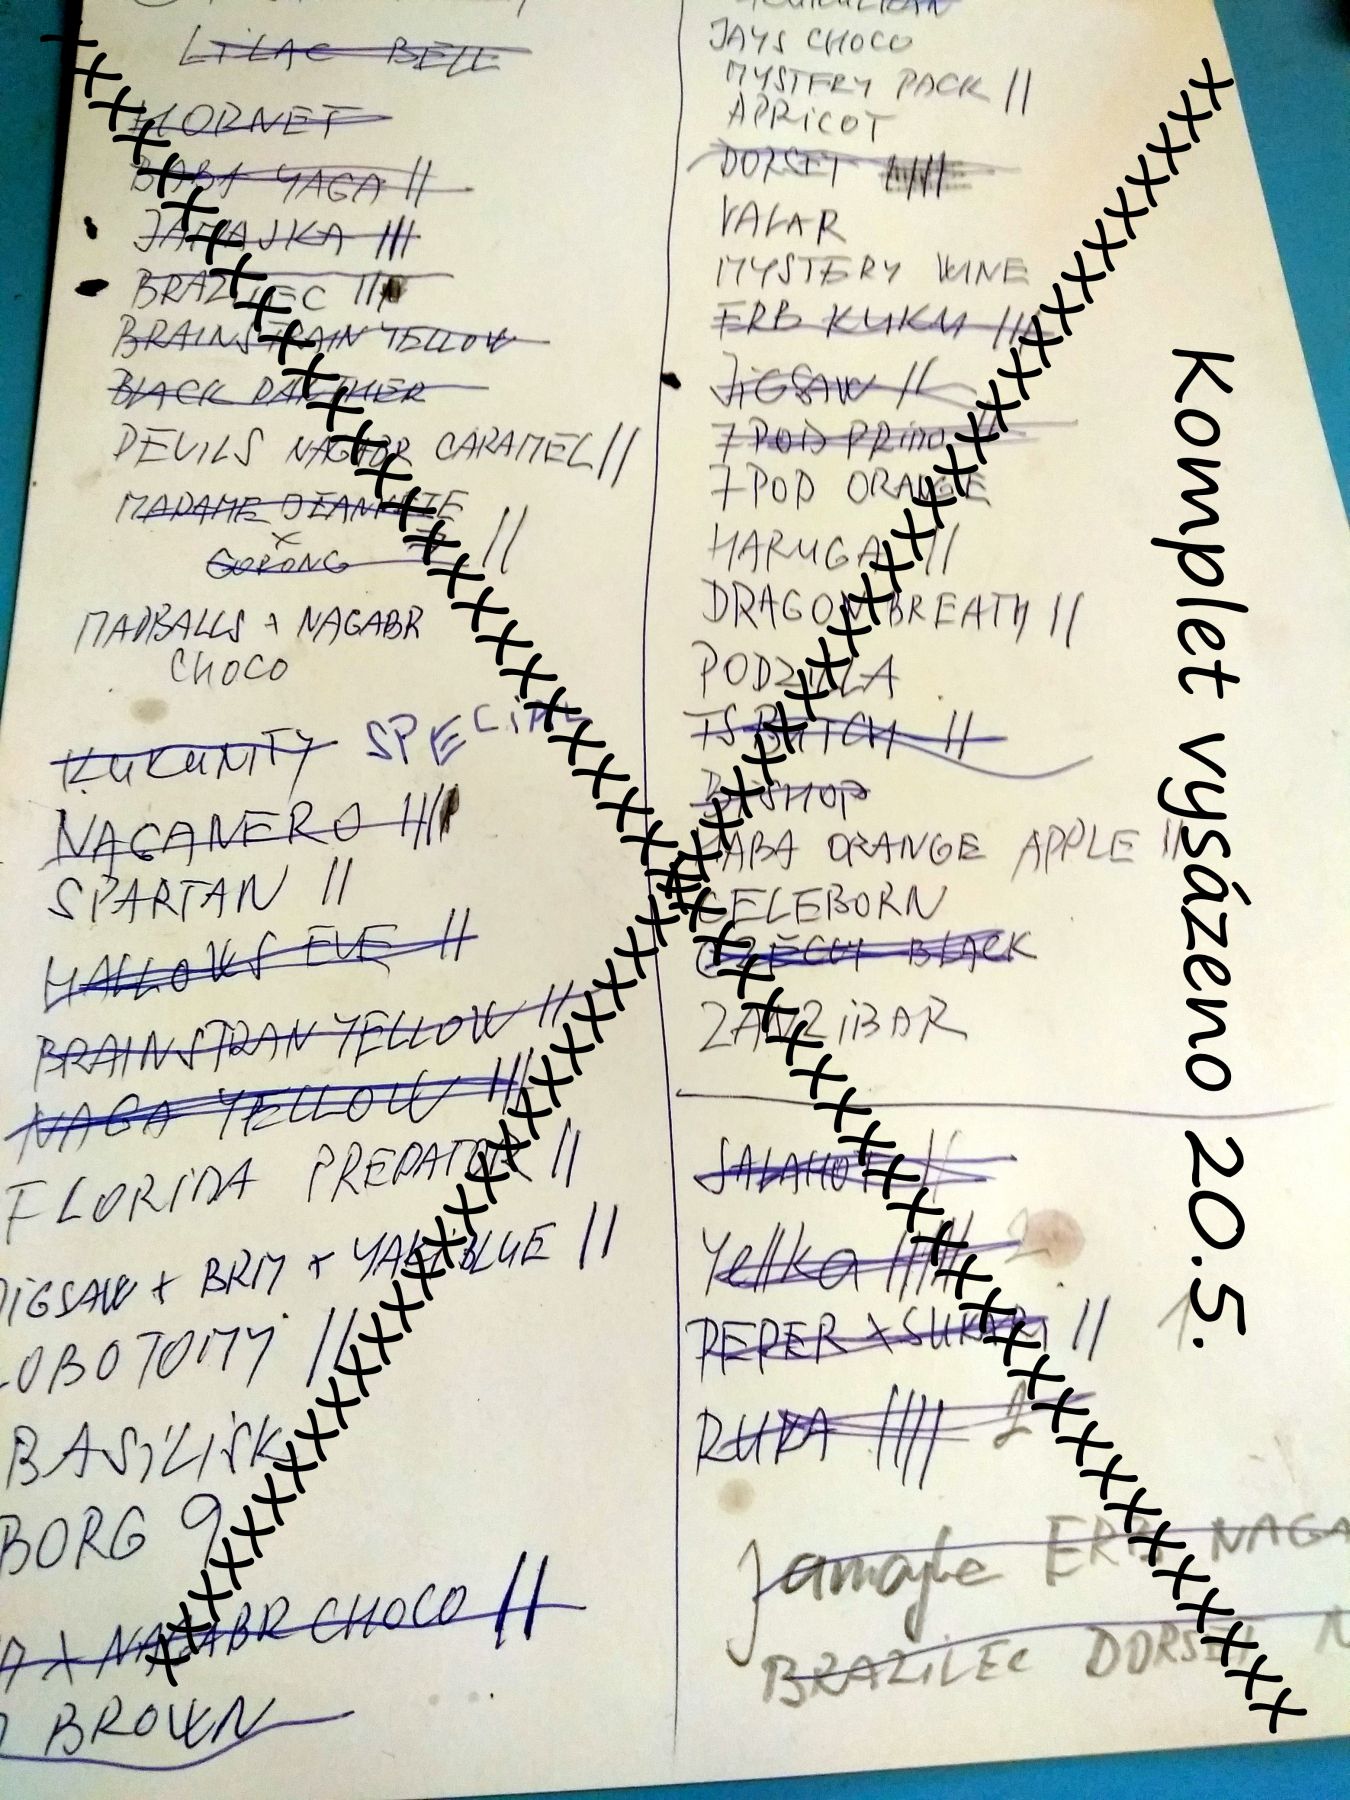 LILAC BELL
HORNET
BABA YAGA II
JAMAJKA III
BRAZILEC III
BRAINSTRAIN YELLOW
BLACK PANTHER
DEVILS NAGABR CARAMEL II
MADAME JEANETTE
X
GORONG II
MADBALLS + NAGABR
CHOCO
KUKUNITY SPECIAL
NAGANERO III
SPARTAN II
HALLOWS EVE II
BRAINSTRAN YELLOW II
NAGA YELLOW III
FLORIDA PREDATOR II
JIGSAW + BRM + YAKI BLUE II
LOBOTOMY II
BASILISK
BORG 9
X NAGABR CHOCO II
BROWN
JAYS CHOCO
MYSTERY PACK II
APRICOT
DORSET IIII
VALAR
MYSTERY WINE
ERB KUKU III
JIGSAW II
7 POD PRIMO II
7 POD ORANGE
HARUGA II
DRAGON BREATH II
PODZILLA
TS BUTCH II
BISHOP
JABA ORANGE APPLE II
CELEBORN
BLACK
ZANZIBAR
SALAHOR II
Yellka IIIII 2
PEPER X SUKURI II 1
RUKA IIII 2
Jamajke ERB NAGA
BRAZILEC DORSET N
Komplet vysázeno 20.5.